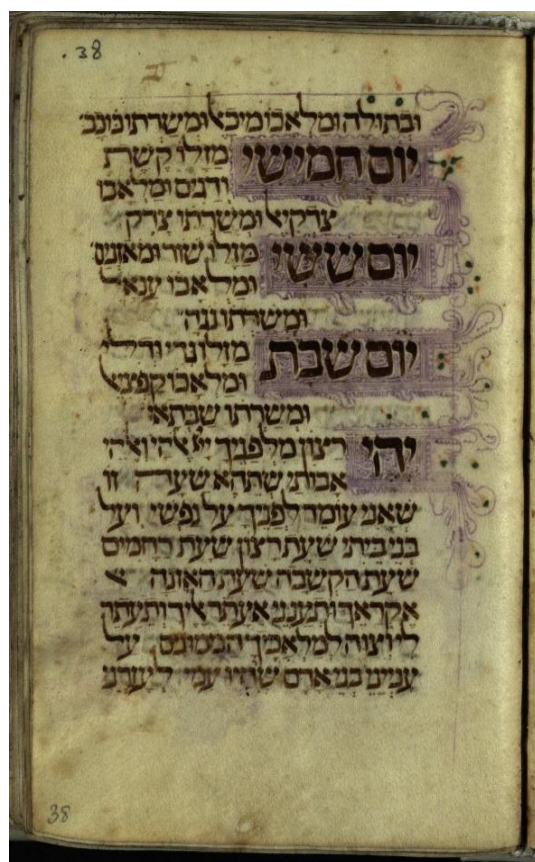 38
ובתולה ומלאכו מיכאל ומשרתו כוכב
יום חמישי מזלו קשת
ודגים ומלאכו
צדקיאל ומשרתו צדק
יום ששי מזלו שור ומאזנים
ומלאכו ענאל
ומשרתו נוגה
יום שבת מזלו גדי ודלי
ומלאכו קפציאל
ומשרתו שבתאי
יהי רצון מלפניך ייי אלהי ואלהי
אבותי שתהא שעה זו
שאני עומד לפניך על נפשי ועל
בני ביתי שעת רצון שעת רחמים
שעת הקשבה שעת האזנה
אקראך ותענני אעתר אליך ותעתר
לי וצוה למלאכיך הממונים על
ענייני בני אדם שיהיו עמי לעזרני
38